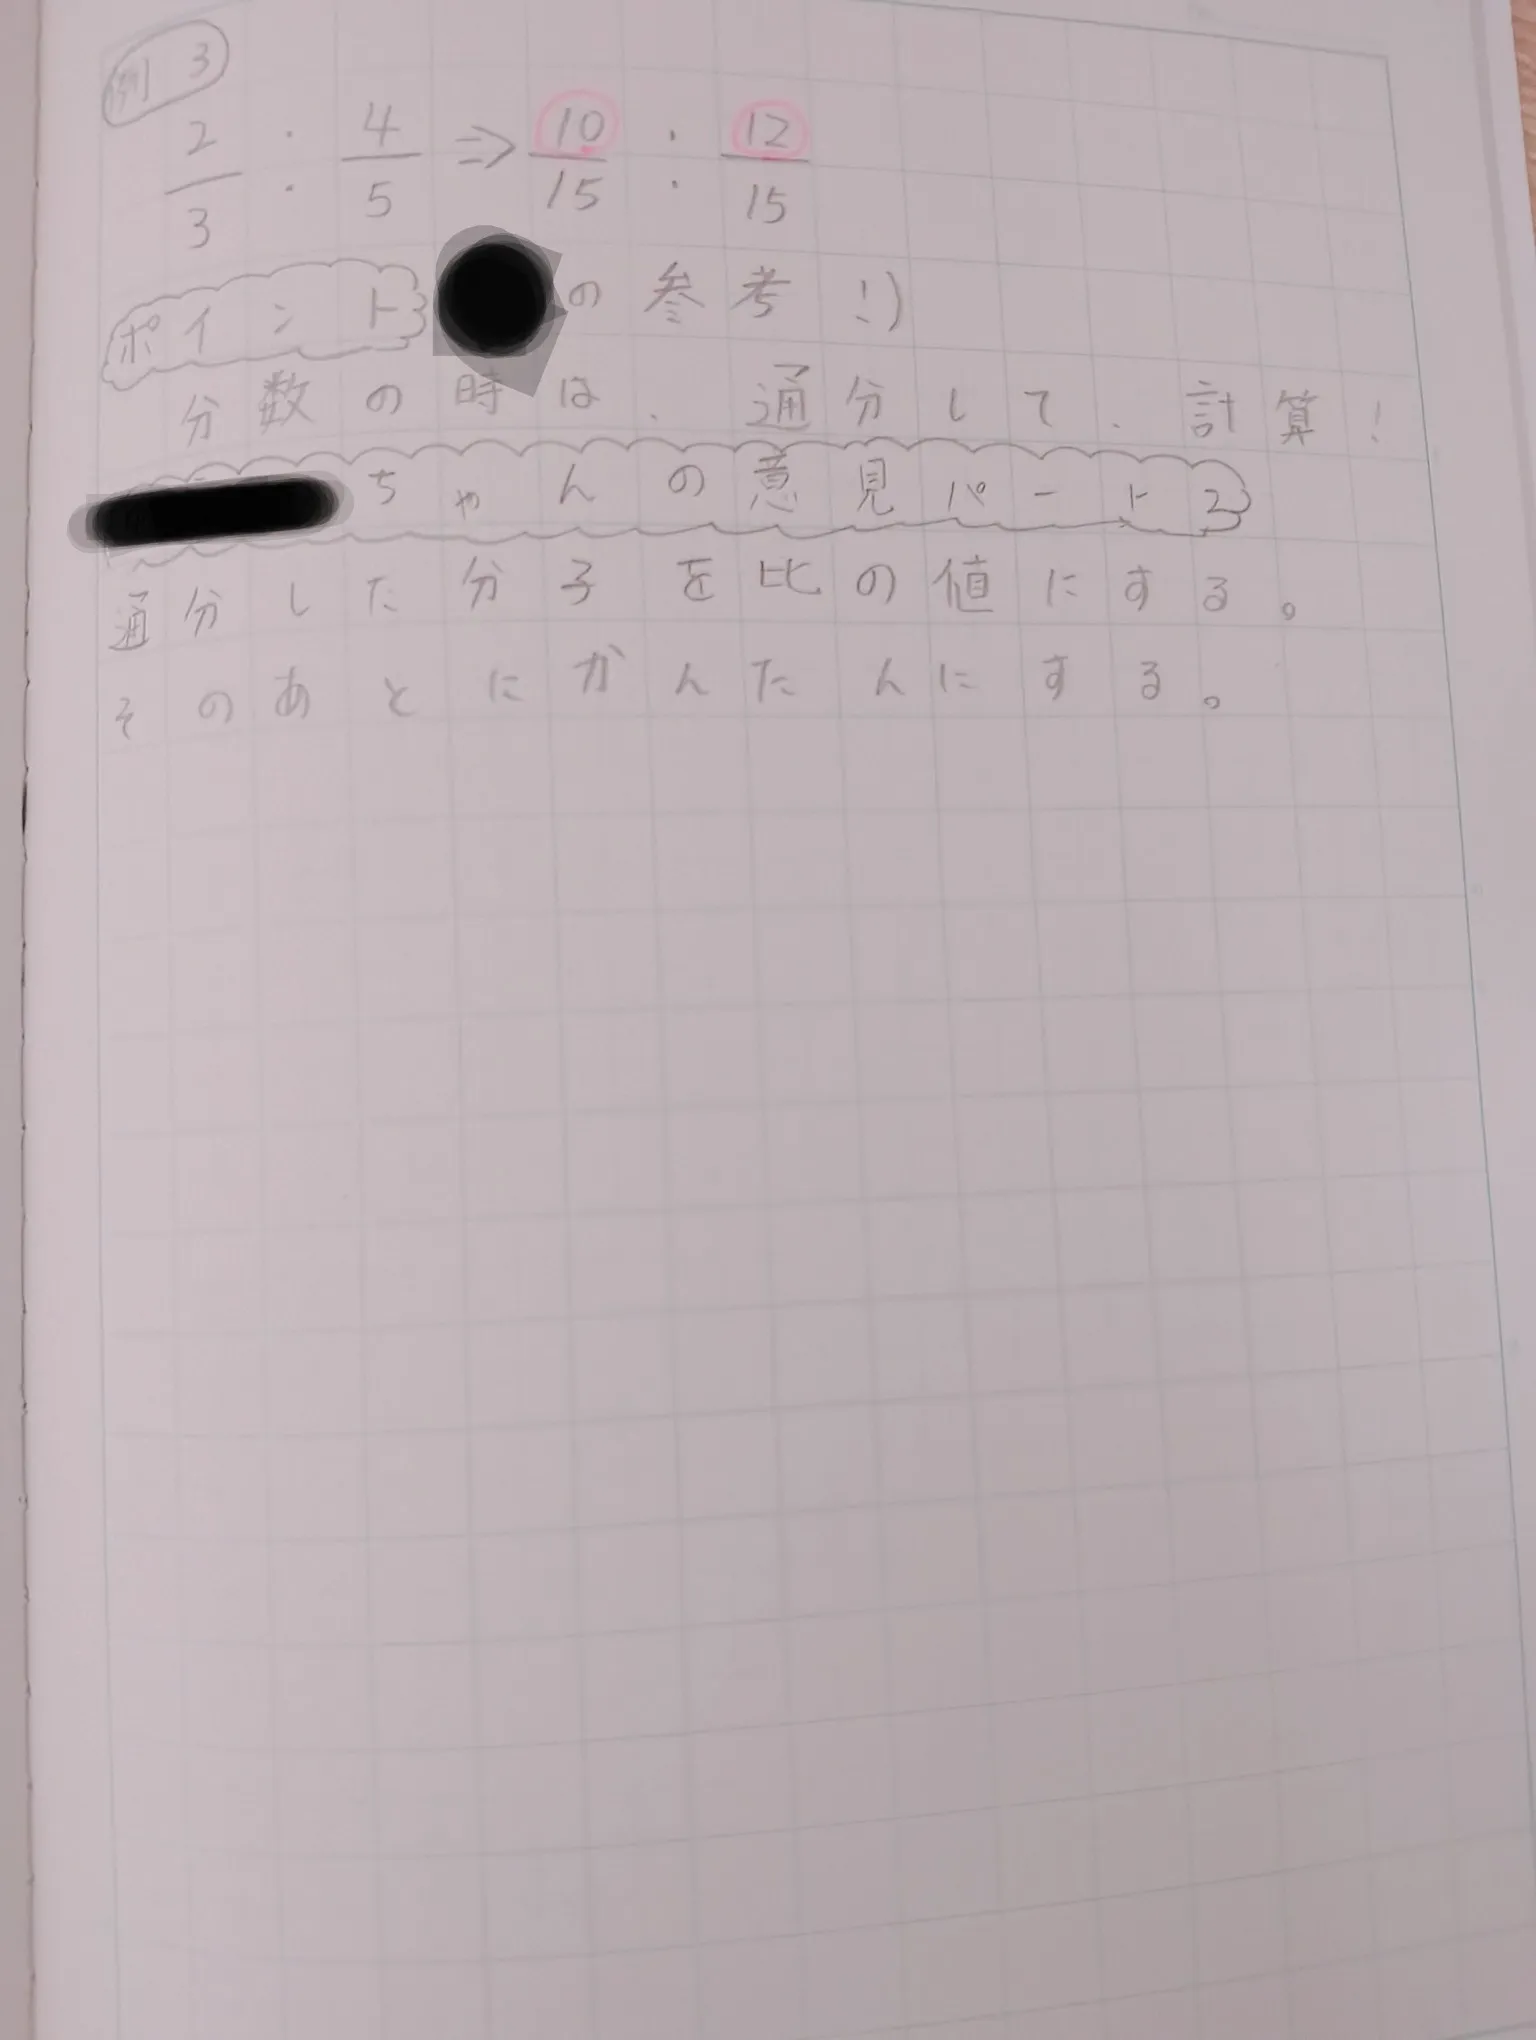 例3
2/3 : 4/5 ⇒ 10/15 : 12/15
ポイント の参考!)
分数の時は、通分して、計算!
ちゃんの意見パート2
通分した分子を比の値にする。
そのあとにかんたんにする。